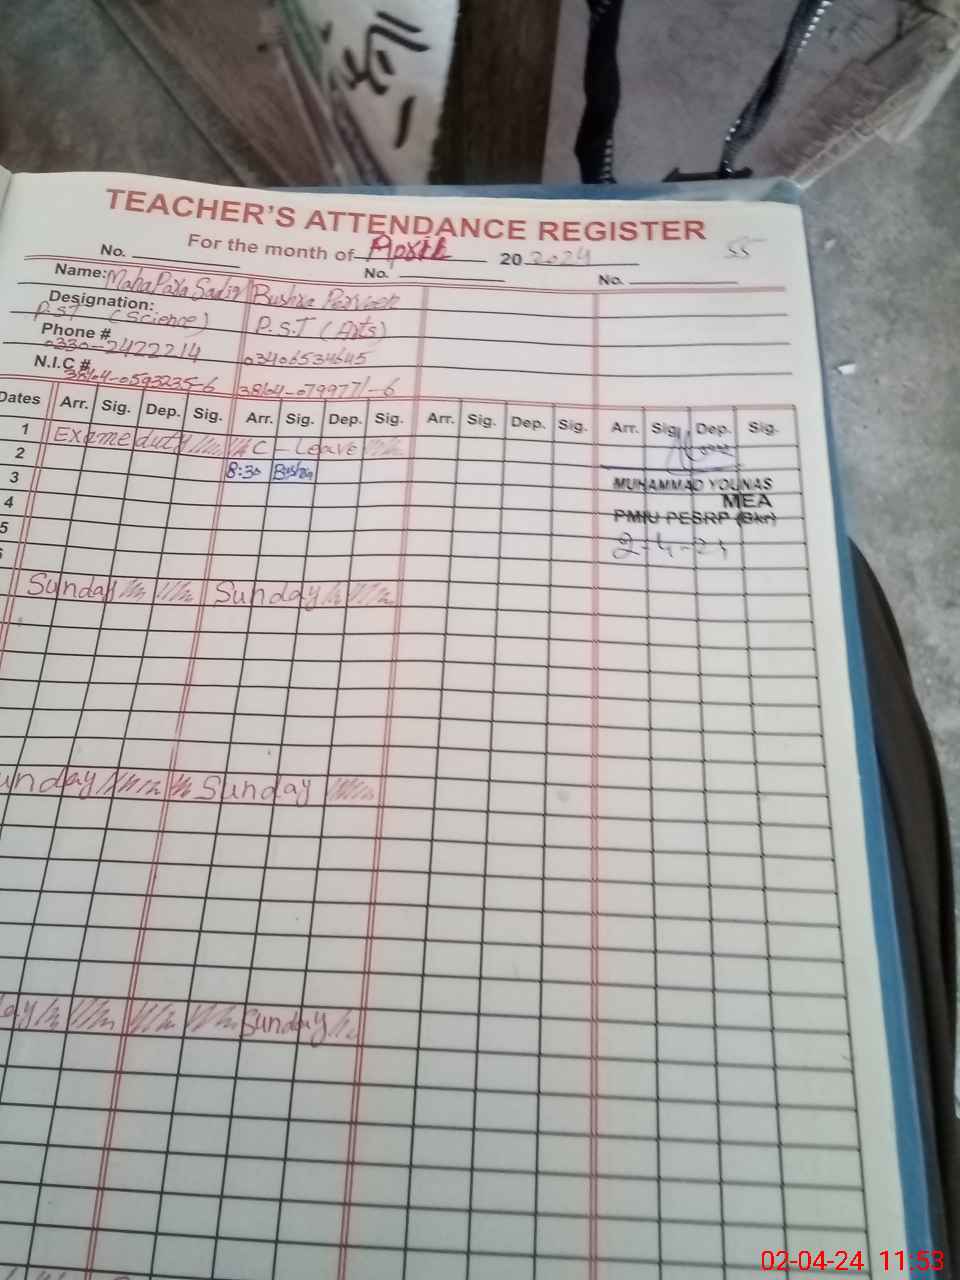 TEACHER'S ATTENDANCE REGISTER
For the month of April 20 2024 55
No. No. No.
Name: MahaPara Sadiq Bushra Parveen
Designation: P.S.T (Science) P.S.T (Arts)
Phone # 0330-2422214 03406534645
N.I.C # 38104-0593235-6 38104-0799771-6
Dates Arr. Sig. Dep. Sig. Arr. Sig. Dep. Sig. Arr. Sig. Dep. Sig. Arr. Sig. Dep. Sig.
1 Exame duty C - Leave
2 8:30 Bushra
3 MUHAMMAD YOUNAS
4 MEA
PMIU PESRP (Bkr)
5 2-4-24
Sunday Sunday
unday Sunday
day Sunday
02-04-24 11:53